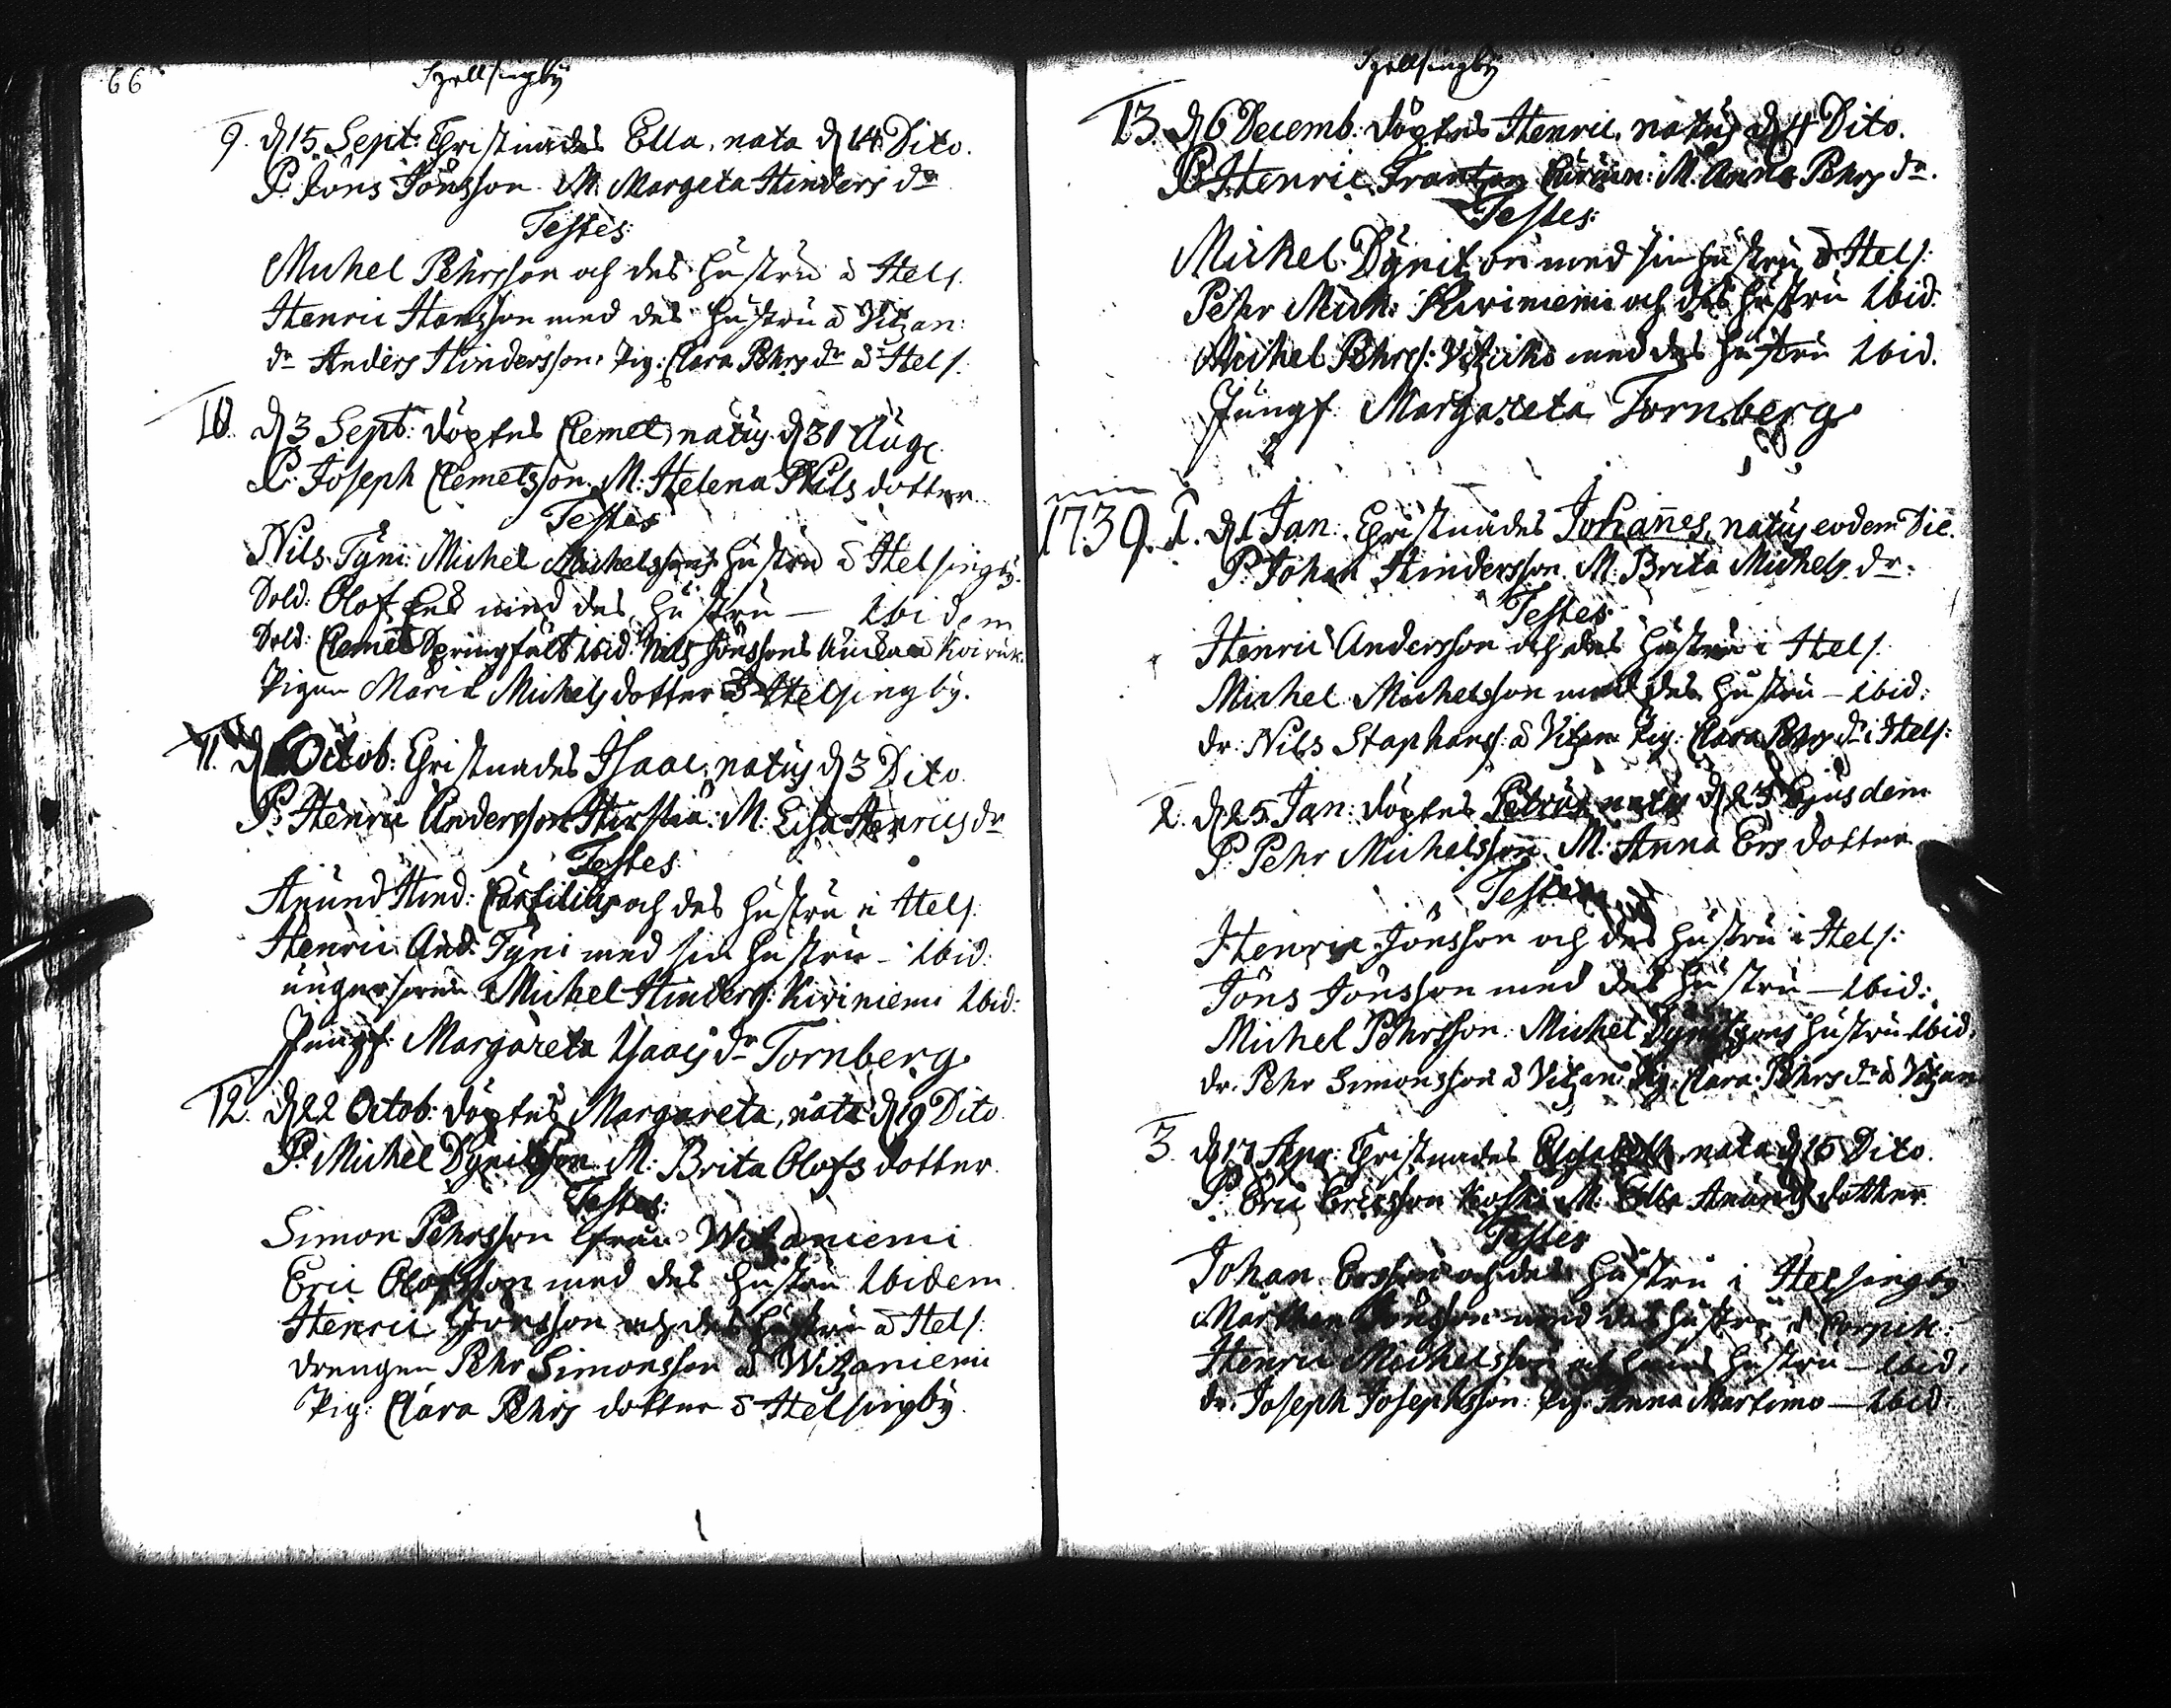 66
Hellsingby
9. d 15. Sept: Christnades Ella, nata d 14 Dito.
P. Jöns Jönsson. M. Margeta Hinders dr
Testes:
Michel Pehrsson och des hustru a Hels.
Henric Hansson med des hustru a Vitzan:
dr Anders Hindersson, Pig: Clara Pehrs dr a Hels.
10. d 3 Sept: döptes Clemet, natus d 31 Aug.
P. Joseph Clemetsson. M: Helena Nils dotter.
Testes
Nils Tyni. Michel Michelssons hustru a Helsingby.
Sold: Olof med des hustru — Ibidem
Sold: Clemet Springfält ibid. Nils Jönssons
Pigan Maria Michels dotter a Helsingby.
11. d Octob: Christnades Isaac, natus d 3 Dito.
P. Henric Andersson M: Lisa Henrics dr
Testes
Anund Hind: och des hustru i Hels.
Henric And: Tyni med sin hustru - ibid:
ungersven Michel Hinders: Kiviniemi Ibid:
Jungf. Margareta Isaacs dr Tornberg.
12. d 22 Octob: döptes Margareta, nata d 19 Dito
P. Michel M: Brita Olofs dotter.
Testes:
Simon Pehrsson Witzaniemi
Eric Olofsson med des hustru Ibidem
Henric Jönsson och des hustru a Hels:
drengen Pehr Simonsson a Witzaniemi
Pig: Clara Pehrs dotter a Helsingby.
Hellsingby
13. d 6 Decemb: döptes Henric, natus d 4 Dito.
P. Henric M. Anna Pehrs dr.
Testes:
Michel med sin hustru a Hels:
Pehr Mich: Kiviniemi och des hustru Ibid:
Michel Pehrs: med des hustru Ibid.
Jungf. Margareta Tornberg.
1739. 1. d 1 Jan: Christnades Johannes, natus eodem Die.
P. Johan Hindersson. M: Brita Michels dr.
Testes
Henric Andersson och des hustru i Hels.
Michel Michelsson med des hustru — ibid:
dr: Nils Staphans: a Vitzan Pig: Clara Pehrs dr i Hels:
2. d 25 Jan: döptes Petrus natus d 23 Ejusdem
P. Pehr Michelsson M: Anna Ers dotter
Testes
Henric Jönsson och des hustru i Hels:
Jöns Jönsson med des hustru — Ibid:
Michel Pehrsson. Michel hustru Ibid.
dr. Pehr Simonsson a Vitzan: Pig. Clara Pehrs dr a Vitzan
3. d 17 Apr: Christnades Elisabeth nata d 15 Dito.
P. Eric Ericsson Koski M. Ella Anunds dotter
Testes
Johan Ersson och des hustru i Helsingby
Jönsson med des hustru a
Henric Michelsson och hans hustru — ibid.
dr. Joseph Josephsson. Pig. Anna Martimo — Ibid: